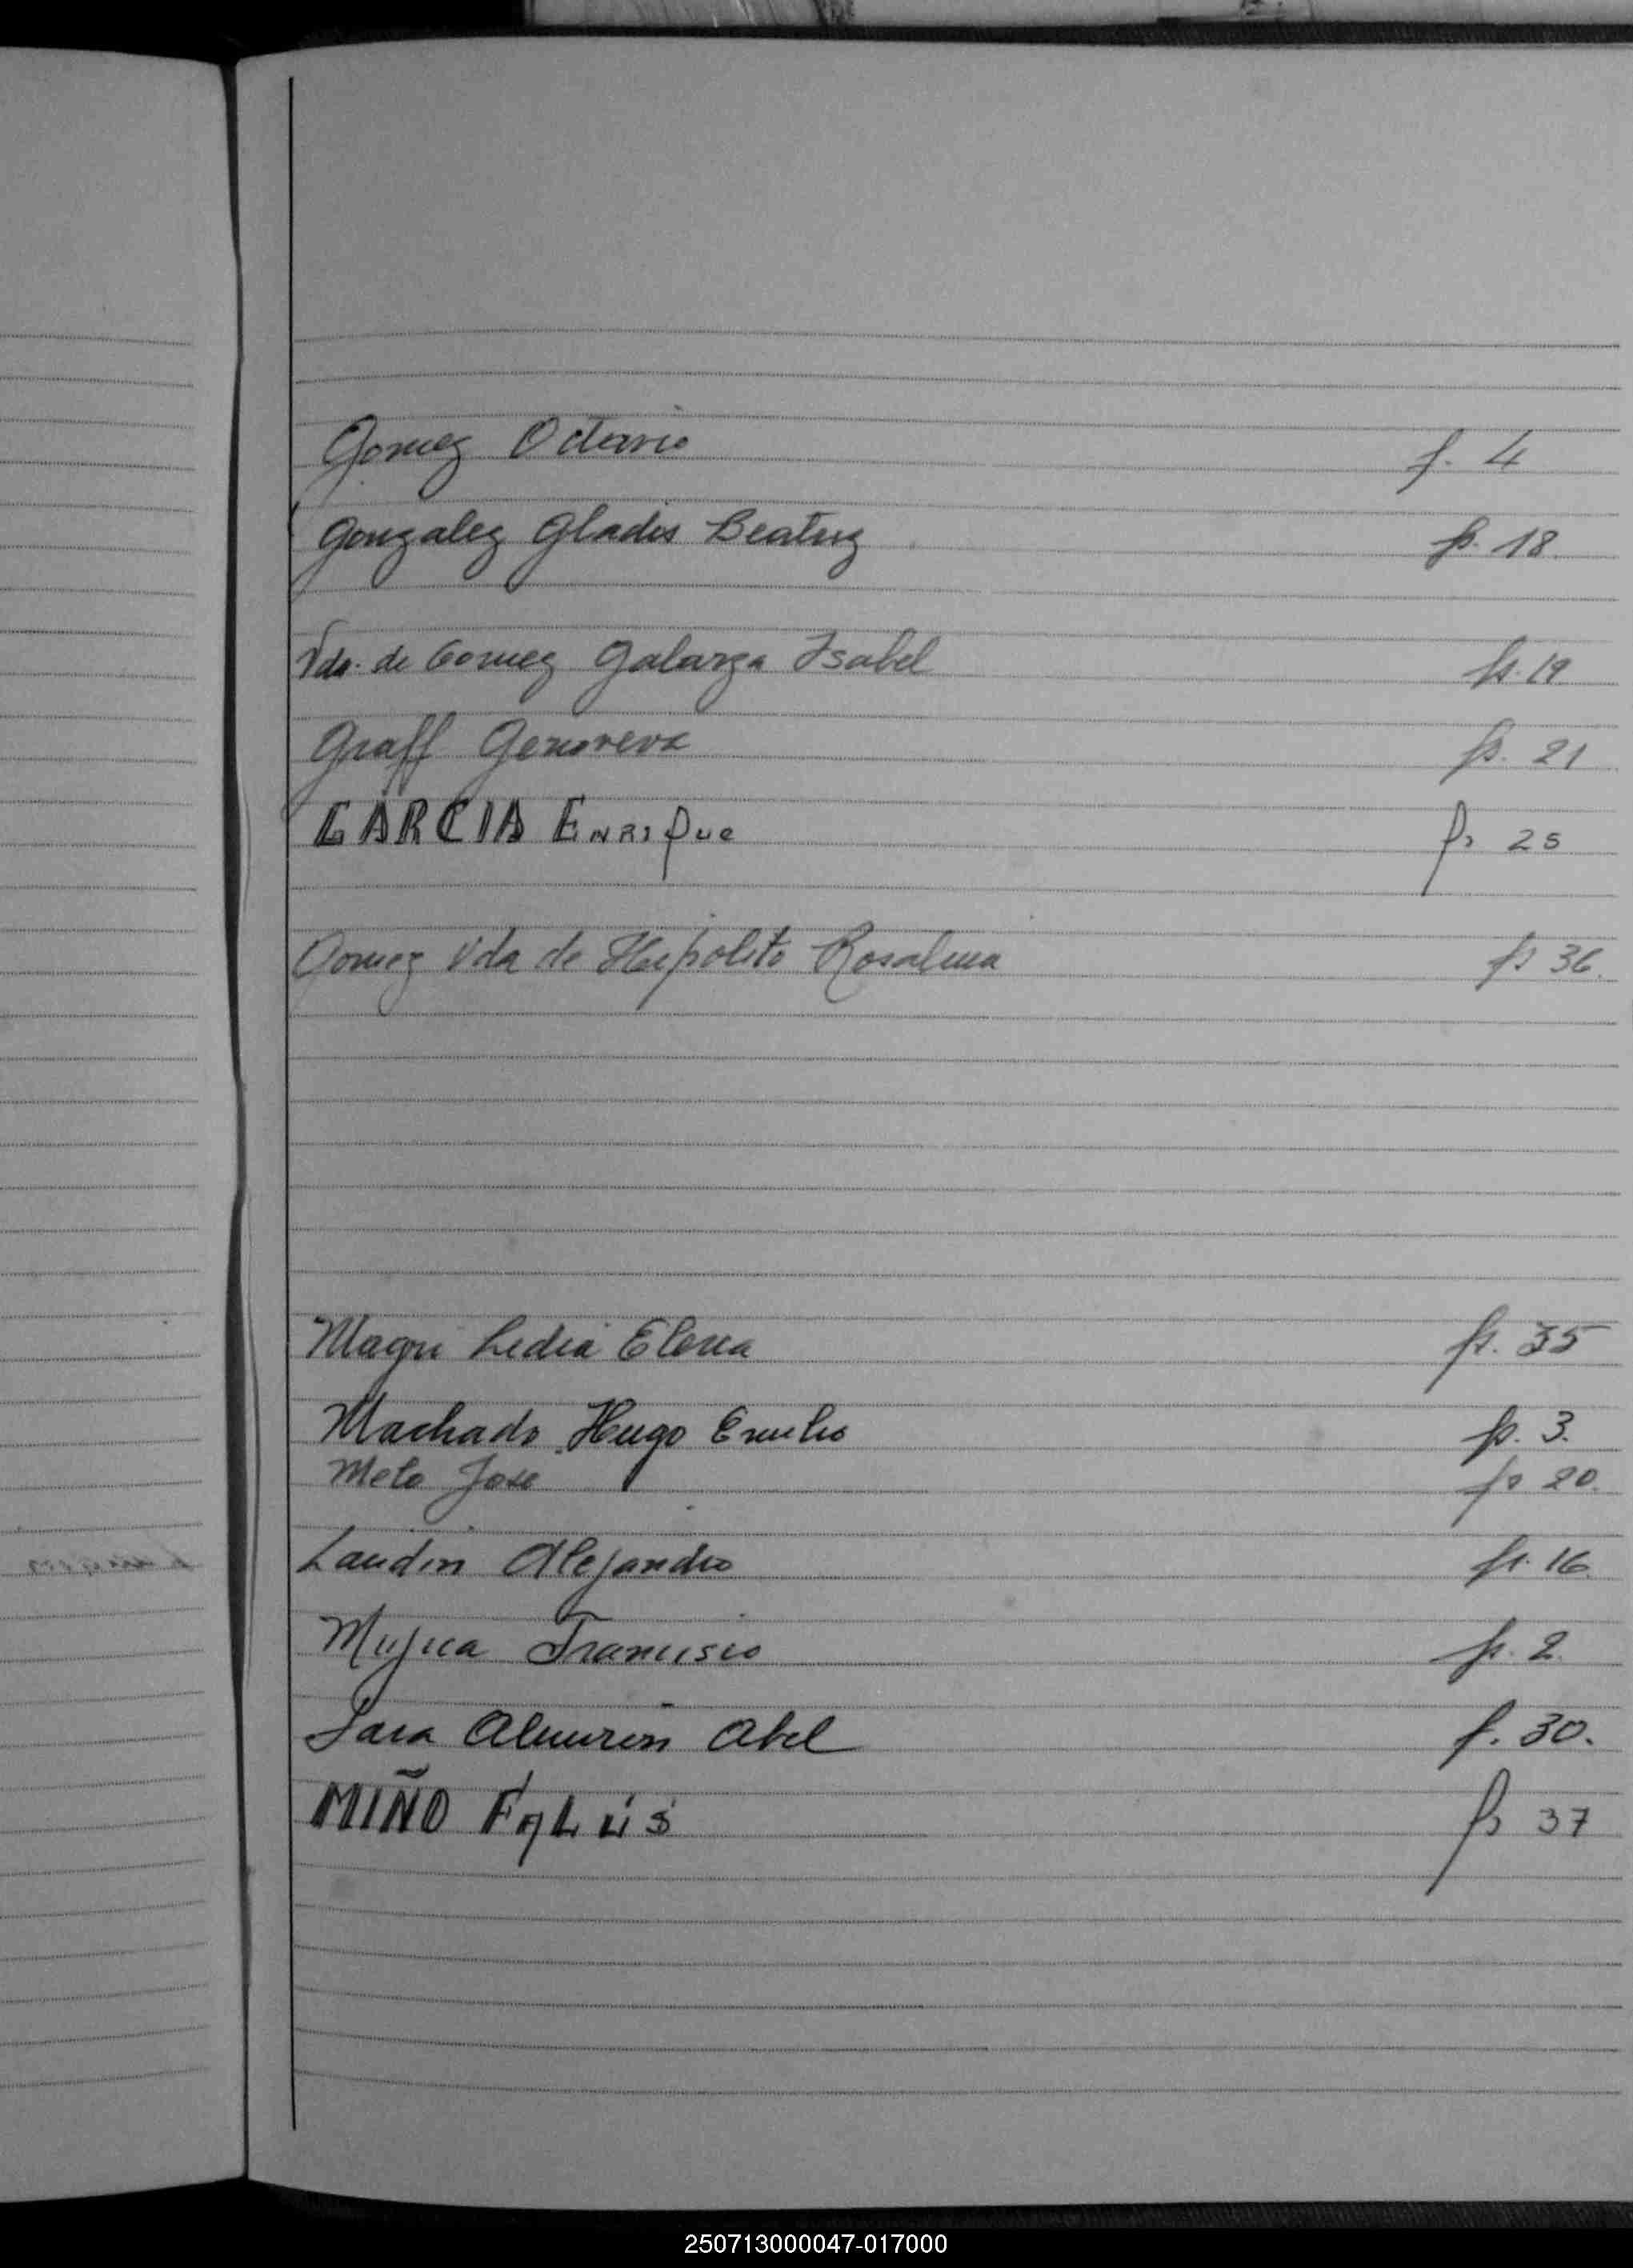 Gomez Octavio f. 4
Gonzalez Gladis Beatriz fs. 18.
Vda. de Gomez Galarza Isabel fs. 19
Graff Genoveva fs. 21
GARCIA Enrique fs 25
Gomez Vda de Hipolito Rosalina fs 36.
Magri Lidia Elena fs. 35
Machado Hugo Emilio fs. 3.
Melo Jose fs 20.
Landin Alejandro fs. 16.
Mujica Francisco fs. 2.
Lara Almiron Abel f. 30.
MIÑO fs 37
250713000047-017000